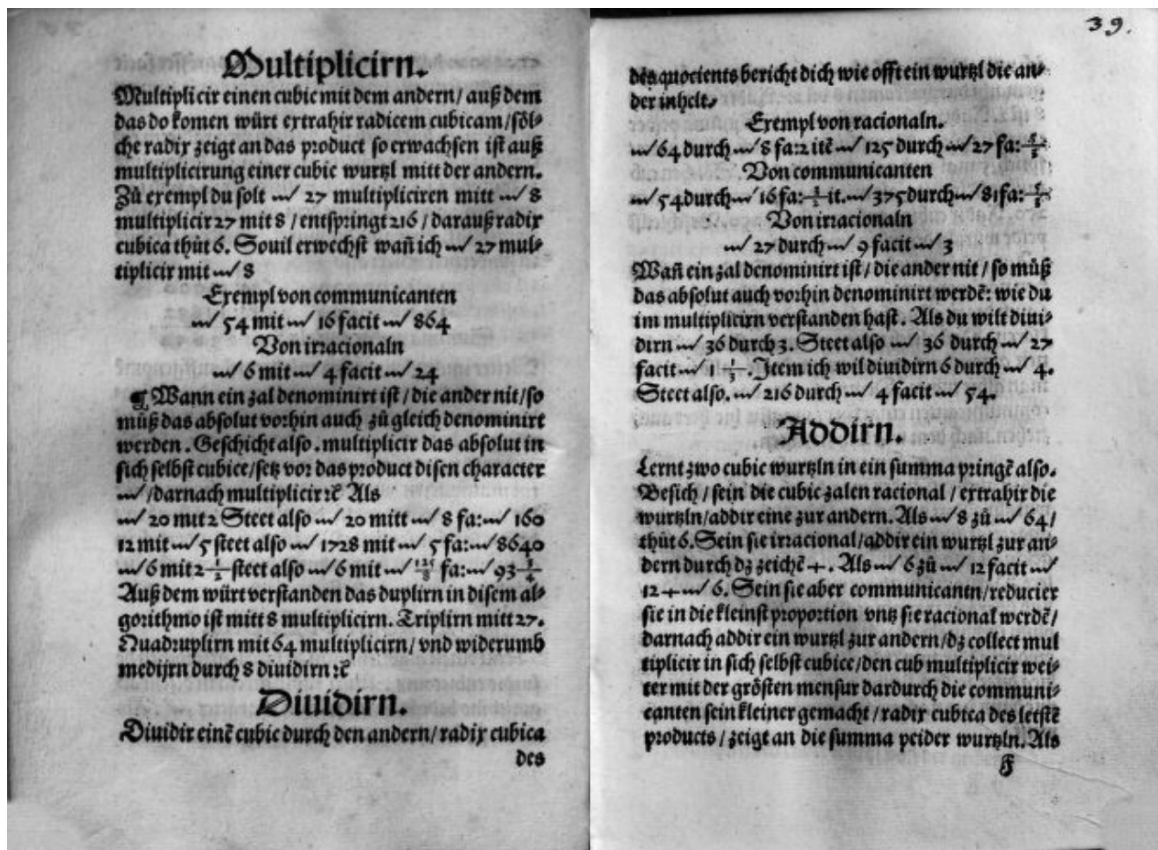 Multiplicirn.
Multiplicir einen cubic mit dem andern/ auß dem
das do komen würt extrahir radicem cubicam/ söl⸗
che radix zeigt an das product so erwachsen ist auß
multiplicirung einer cubic wurtzl mitt der andern.
Zů exempl du solt √ 27 multipliciren mitt √ 8
multiplicir 27 mit 8 / entspringt 216 / darauß radix
cubica thůt 6. Souil erwechst wañ ich √ 27 mul⸗
tiplicir mit √ 8
Exempl von communicanten
√ 54 mit √ 16 facit √ 864
Von irracionaln
√ 6 mit √ 4 facit √ 24
¶ Wann ein zal denominirt ist / die ander nit/ so
můß das absolut vorhin auch zů gleich denominirt
werden. Geschicht also. multiplicir das absolut in
sich selbst cubice/ setz vor das product disen character
√ /darnach multiplicir ⁊c̃ Als
√ 20 mit 2 Steet also √ 20 mitt √ 8 fa: √ 160
12 mit √ 5 steet also √ 1728 mit √ 5 fa: √ 8640
√ 6 mit 2 1/2 steet also √ 6 mit √ 125/8 fa: √ 93 3/4
Auß dem würt verstanden das duplirn in disem al⸗
gorithmo ist mitt 8 multiplicirn. Triplirn mitt 27.
Quadruplirn mit 64 multiplicirn/ vnd widerumb
medijrn durch 8 diuidirn ⁊c̃
Diuidirn.
Diuidir einẽ cubic durch den andern/ radix cubica
des
39.
des quocients bericht dich wie offt ein wurtzl die an⸗
der inhelt.
Exempl von racionaln.
√ 64 durch √ 8 fa: 2 itẽ √ 125 durch √ 27 fa: 5/3
Von communicanten
√ 54 durch √ 16 fa: 3/2 it. √ 375 durch √ 81 fa: 5/3
Von irracionaln
√ 27 durch √ 9 facit √ 3
Wañ ein zal denominirt ist / die ander nit / so můß
das absolut auch vorhin denominirt werdẽ: wie du
im multiplicirn verstanden hast. Als du wilt diui⸗
dirn √ 36 durch 3. Steet also √ 36 durch √ 27
facit √ 1 1/3. Item ich wil diuidirn 6 durch √ 4.
Steet also. √ 216 durch √ 4 facit √ 54.
Addirn.
Lernt zwo cubic wurtzln in ein summa pringẽ also.
Besich / sein die cubic zalen racional / extrahir die
wurtzln/ addir eine zur andern. Als √ 8 zů √ 64/
thůt 6. Sein sie irracional/ addir ein wurtzl zur an⸗
dern durch dz zeichẽ +. Als √ 6 zů √ 12 facit √
12 + √ 6. Sein sie aber communicantn/ reducier
sie in die kleinst proportion vntz sie racional werdẽ/
darnach addir ein wurtzl zur andern/ dz collect mul
tiplicir in sich selbst cubice/ den cub multiplicir wei⸗
ter mit der grösten mensur dardurch die communi⸗
canten sein kleiner gemacht / radix cubica des letstẽ
products / zeigt an die summa peider wurtzln. Als
F